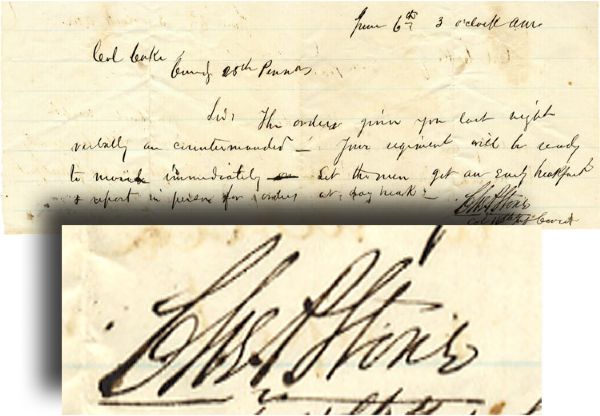 June 6th 3 o'clock am
Col Cake
Comdg 25th Penna
Sir: The orders given you last night
verbally are countermanded — Your regiment will be ready
to move immediately — Let the men get an early breakfast
& report in person for orders at day break —
Chas P Stone
Col 14th Inf Comd
Chas P Stone